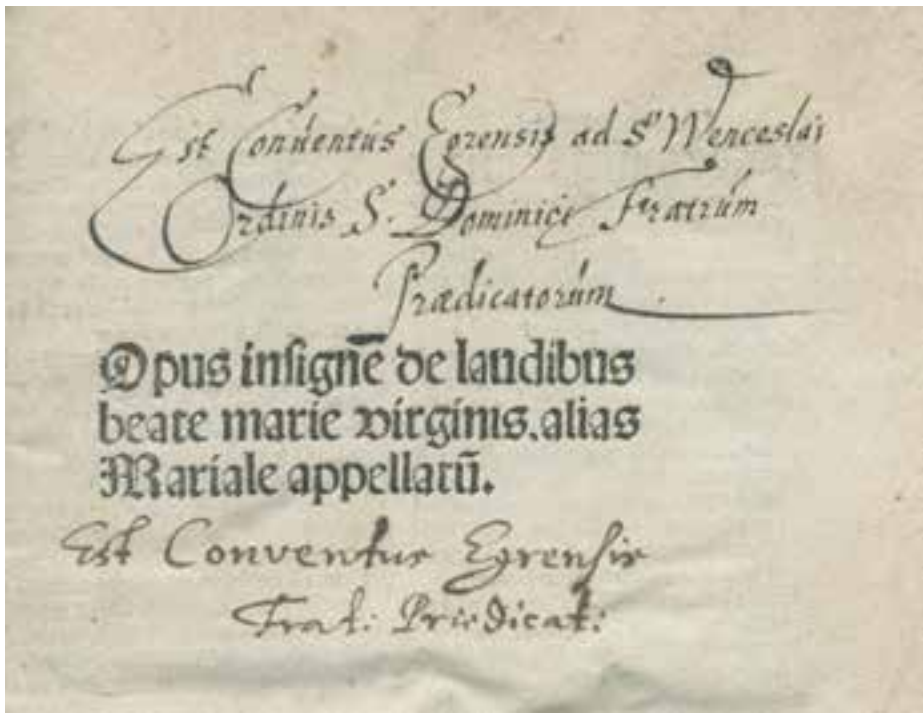 Est Conúentús Egrensis ad S. Wenceslai
Ordinis S. Dominici Fratrúm
Prædicatorúm.
Opus insignē de laudibus
beate marie virginis. alias
Mariale appellatū.
Est Conventus Egrensis
Frat: Prædicat: